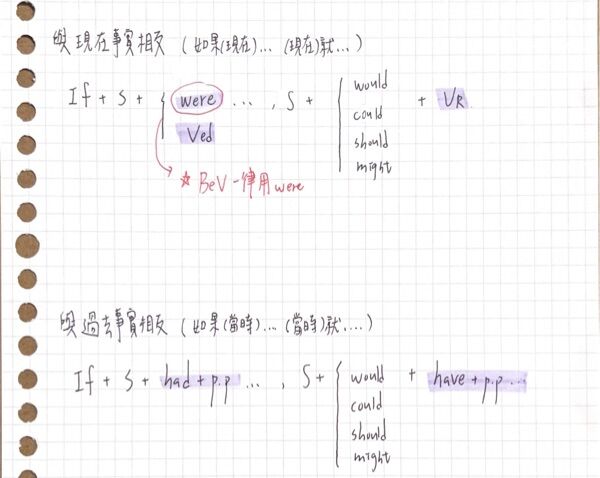 與現在事實相反 (如果(現在)... (現在)就...)
If + S + { were ... , S + { would + VR
Ved could
should
might
☆ BeV 一律用 were
與過去事實相反 (如果(當時)... (當時)就....)
If + S + had + p.p ... , S + { would + have + p.p ...
could
should
might